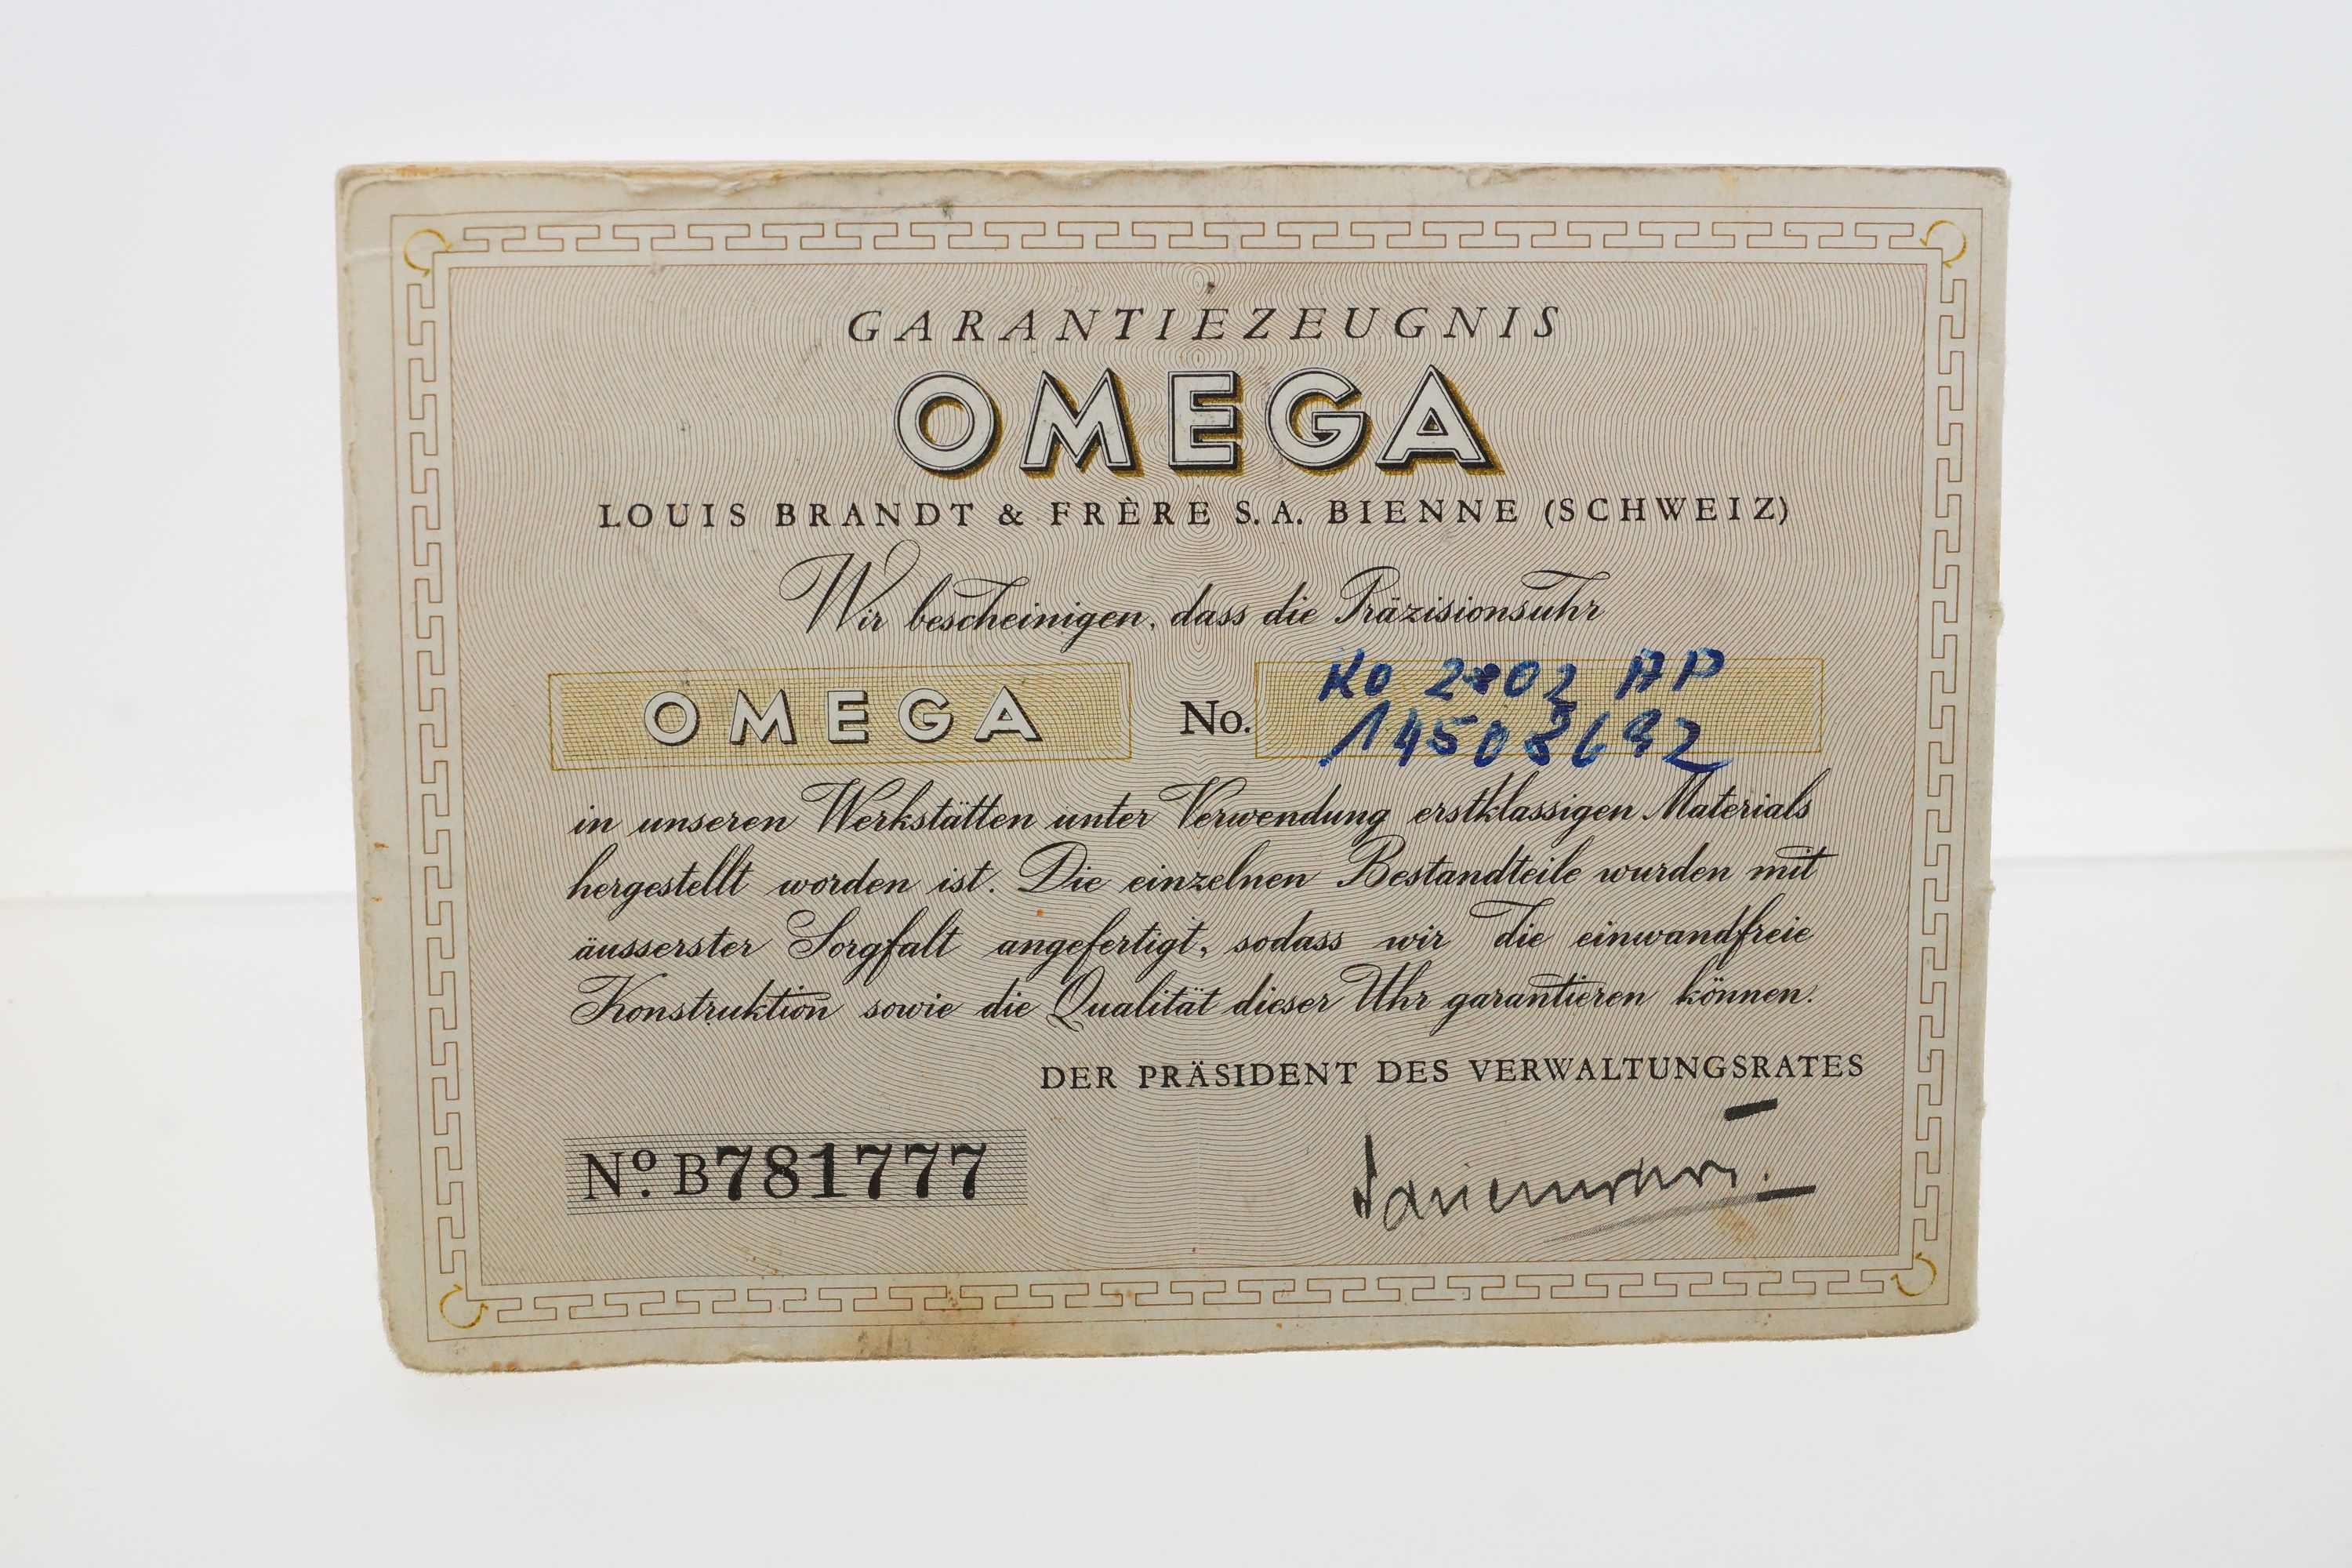 GARANTIEZEUGNIS
OMEGA
LOUIS BRANDT & FRÈRE S.A. BIENNE (SCHWEIZ)
Wir bescheinigen, dass die Präzisionsuhr
OMEGA No. KO 2802 AP
14508692
in unseren Werkstätten unter Verwendung erstklassigen Materials
hergestellt worden ist. Die einzelnen Bestandteile wurden mit
äusserster Sorgfalt angefertigt, sodass wir die einwandfreie
Konstruktion sowie die Qualität dieser Uhr garantieren können.
DER PRÄSIDENT DES VERWALTUNGSRATES
Nº. B781777